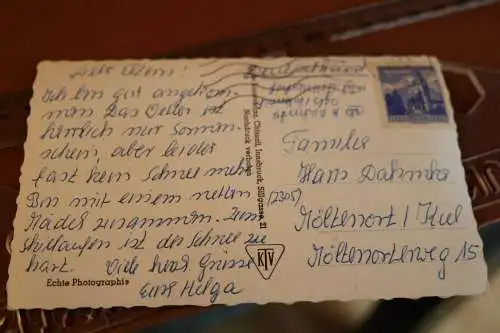 Liebe Eltern!
Ich bin gut angekom-
men. Das Wetter ist
herrlich nur Sonnen-
schein, aber leider
fast kein Schnee mehr.
Bin mit einem netten
Mädel zusammen. Zum
Skilaufen ist der Schnee zu
hart. Viele herzl. Grüsse
Eure Helga
Echte Photographie
Chizzali, Innsbruck, Sillgasse 21
Nachdruck verboten
KTV
Familie
Hans Dahmke
(2305)
Möltenort / Kiel
Möltenorterweg 15